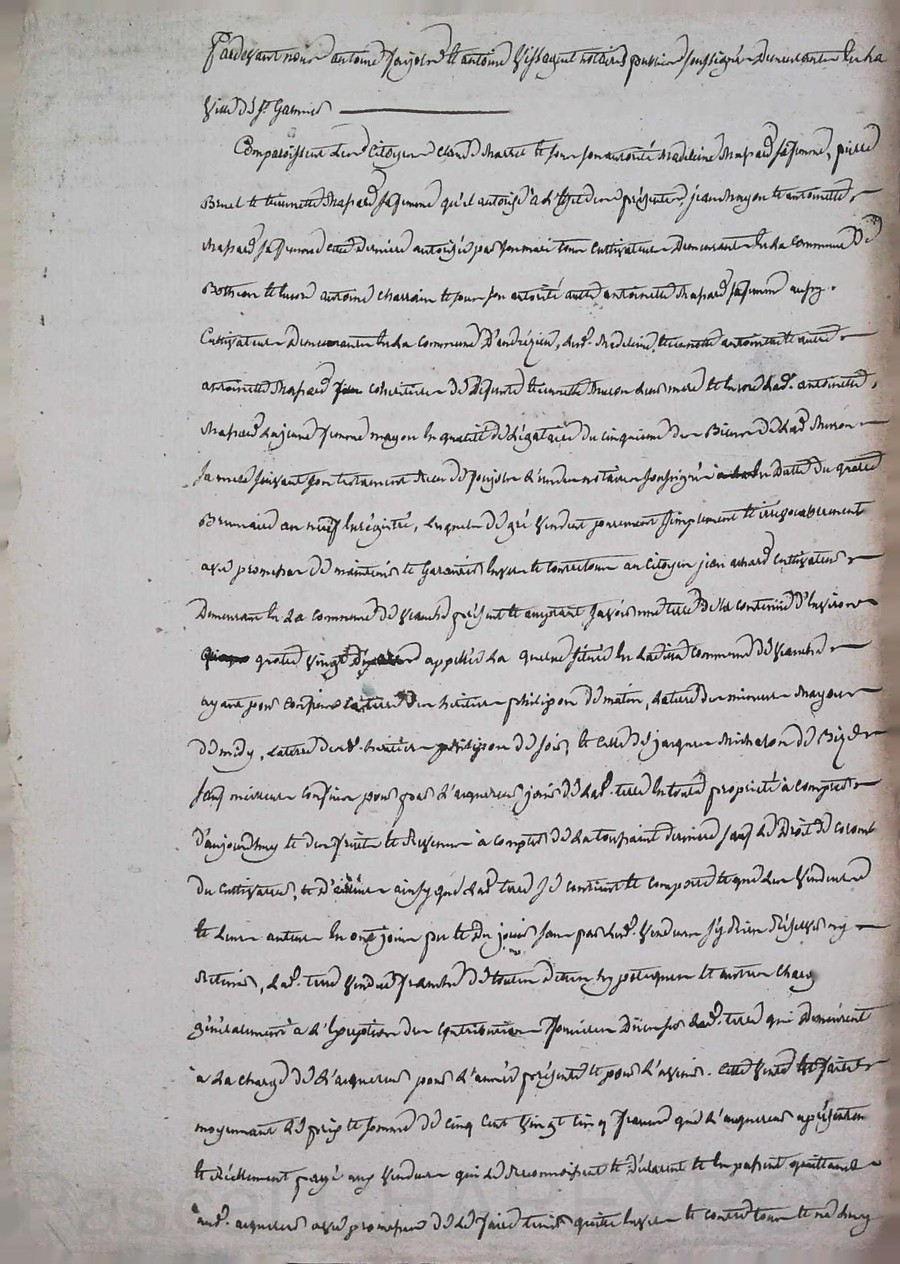 Pardevant nous antoine Jayolre et antoine Vissaguet notaires publics soussignés Demeurants En la
Ville de St Galmier
Comparoissent Les Citoyens claude Marret et sous son autorité Madeleine Chapard sa femme, pierre
Brunel et Lieunette Chapard sa femme qu'il autorise à l'effet des présentes, jean Mayou et antoinette
Chapard sa femme cette dernière autorisée par son mari tous Cultivateurs Demeurants En La Commune De
Bothéon et Encore antoine charrain et sous son autorité autre antoinette Chapard sa femme aussy
Cultivateurs Demeurants En La Commune D'andrézieu, Lesd. Madeleine, antoinette et autre
antoinette Chapard cohéritieres de Défunte Muron Leur mere et Encore Lad. antoinette
Chapard La jeune femme mayou En qualité de Légataire du cinquième des Biens de Lad Muron
sa mere suivant son testament Reçu de L'un des notaires soussignés En Datte du quatre
Brumaire an neuf Enrégistré, Lesquels de gré Vendent purement simplement et irrévocablement
avec promesse de maintenir et Garantir Envers et contre tous au Citoyen jean Cultivateur
Demeurant En La Commune de Veauche présent et acceptant Savoir une terre De la contenue d'Environ
quatre Vingt appellée La située En Laditte Commune de Veauche
ayant pour Confins La terre des héritiers philipon de matin, La terre des mineurs Mayou
de midy, La terre desd. héritiers philipon de soir, et celle de jacques Micholon de Bize
sauf meilleurs Confins pour par L'acquereur jouir de Lad. terre En toute propriété à compter
d'aujourdhuy et des fruits et Revenus à compter de La toussaint derniere sauf Le Droit de colonb
du Cultivateur, et d'ailleurs ainsy que Lad terre se contient et comporte et que Les Vendeurs
et Leurs auteurs En ont joui pu et du jouir sans par Lesd. Vendeurs s'y Rien Réserver ny
Retenir, Lad. terre Vendue franche de toutes dettes hypoteques et autres Charg
généralement à L'exception des Contributions foncières Dues sur Lad. terre qui Demeurent
à La charge de L'acquereur pour L'année présente et pour L'avenir. Cette Vente faitte
moyennant Le prix et somme de Cinq Cent Vingt Cinq francs que L'acquereur a présentem
et Réellement payé aux Vendeurs qui Le Reconnoissent et Déclarent et En passent quittance
aud. acquereur avec promesse de Le faire tenir quitte Envers et contre tous et ne